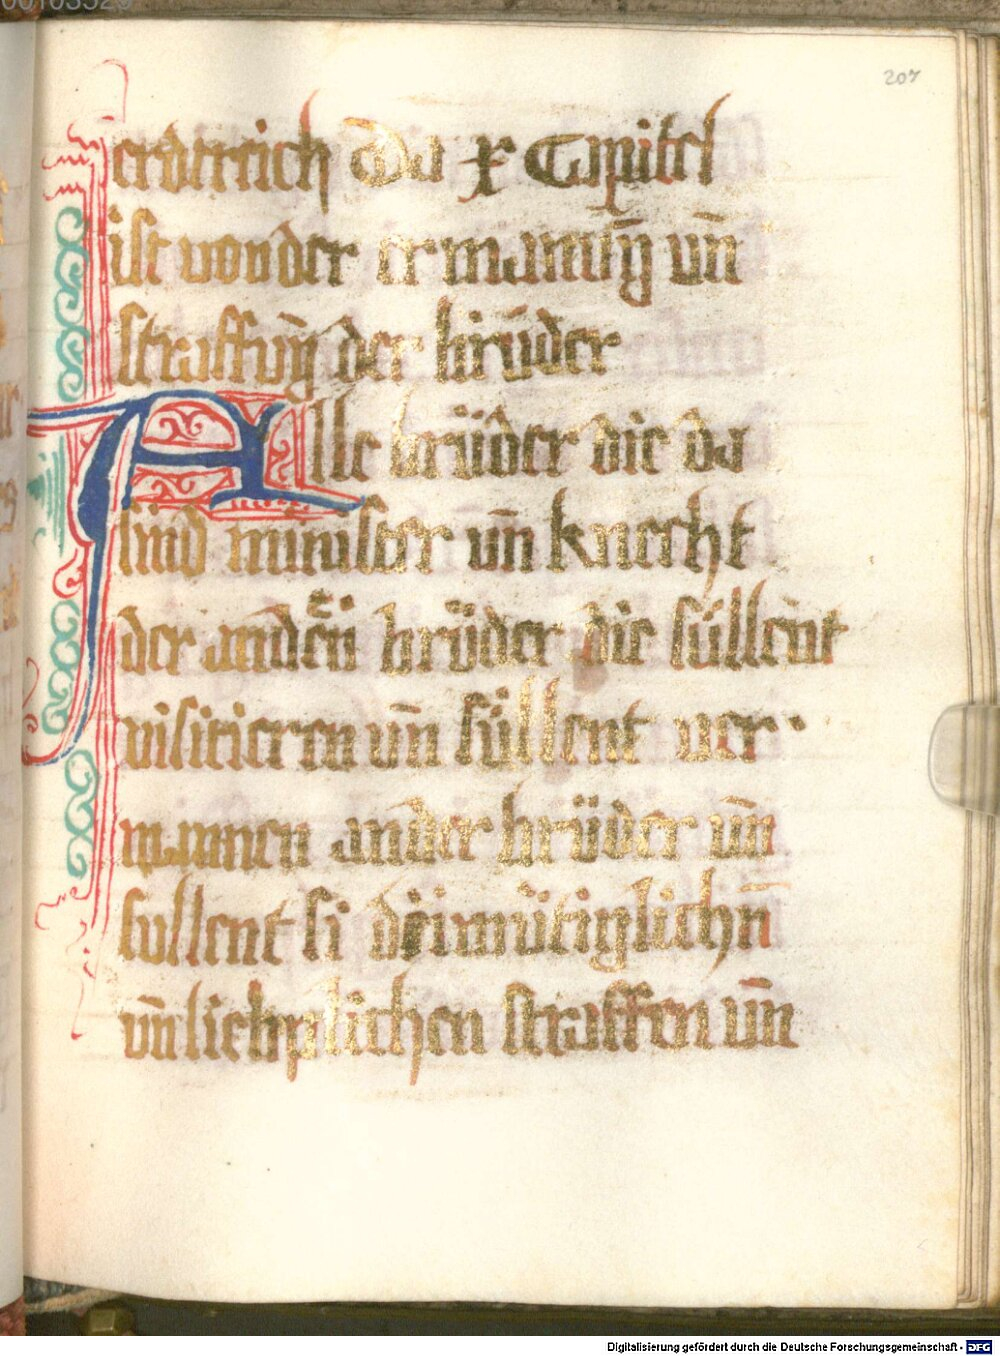 207
erdtreich Da x Capitel
ist von der ermanūg uñ
straffūg der brüder
Alle brüder die da
sind minister uñ knecht
der andeñ brüder die süllent
visitieren uñ süllent ver
mannen ander brüder uñ
sullent si deimütiglichñ
uñ lieplichen straffen uñ
Digitalisierung gefördert durch die Deutsche Forschungsgemeinschaft - DFG